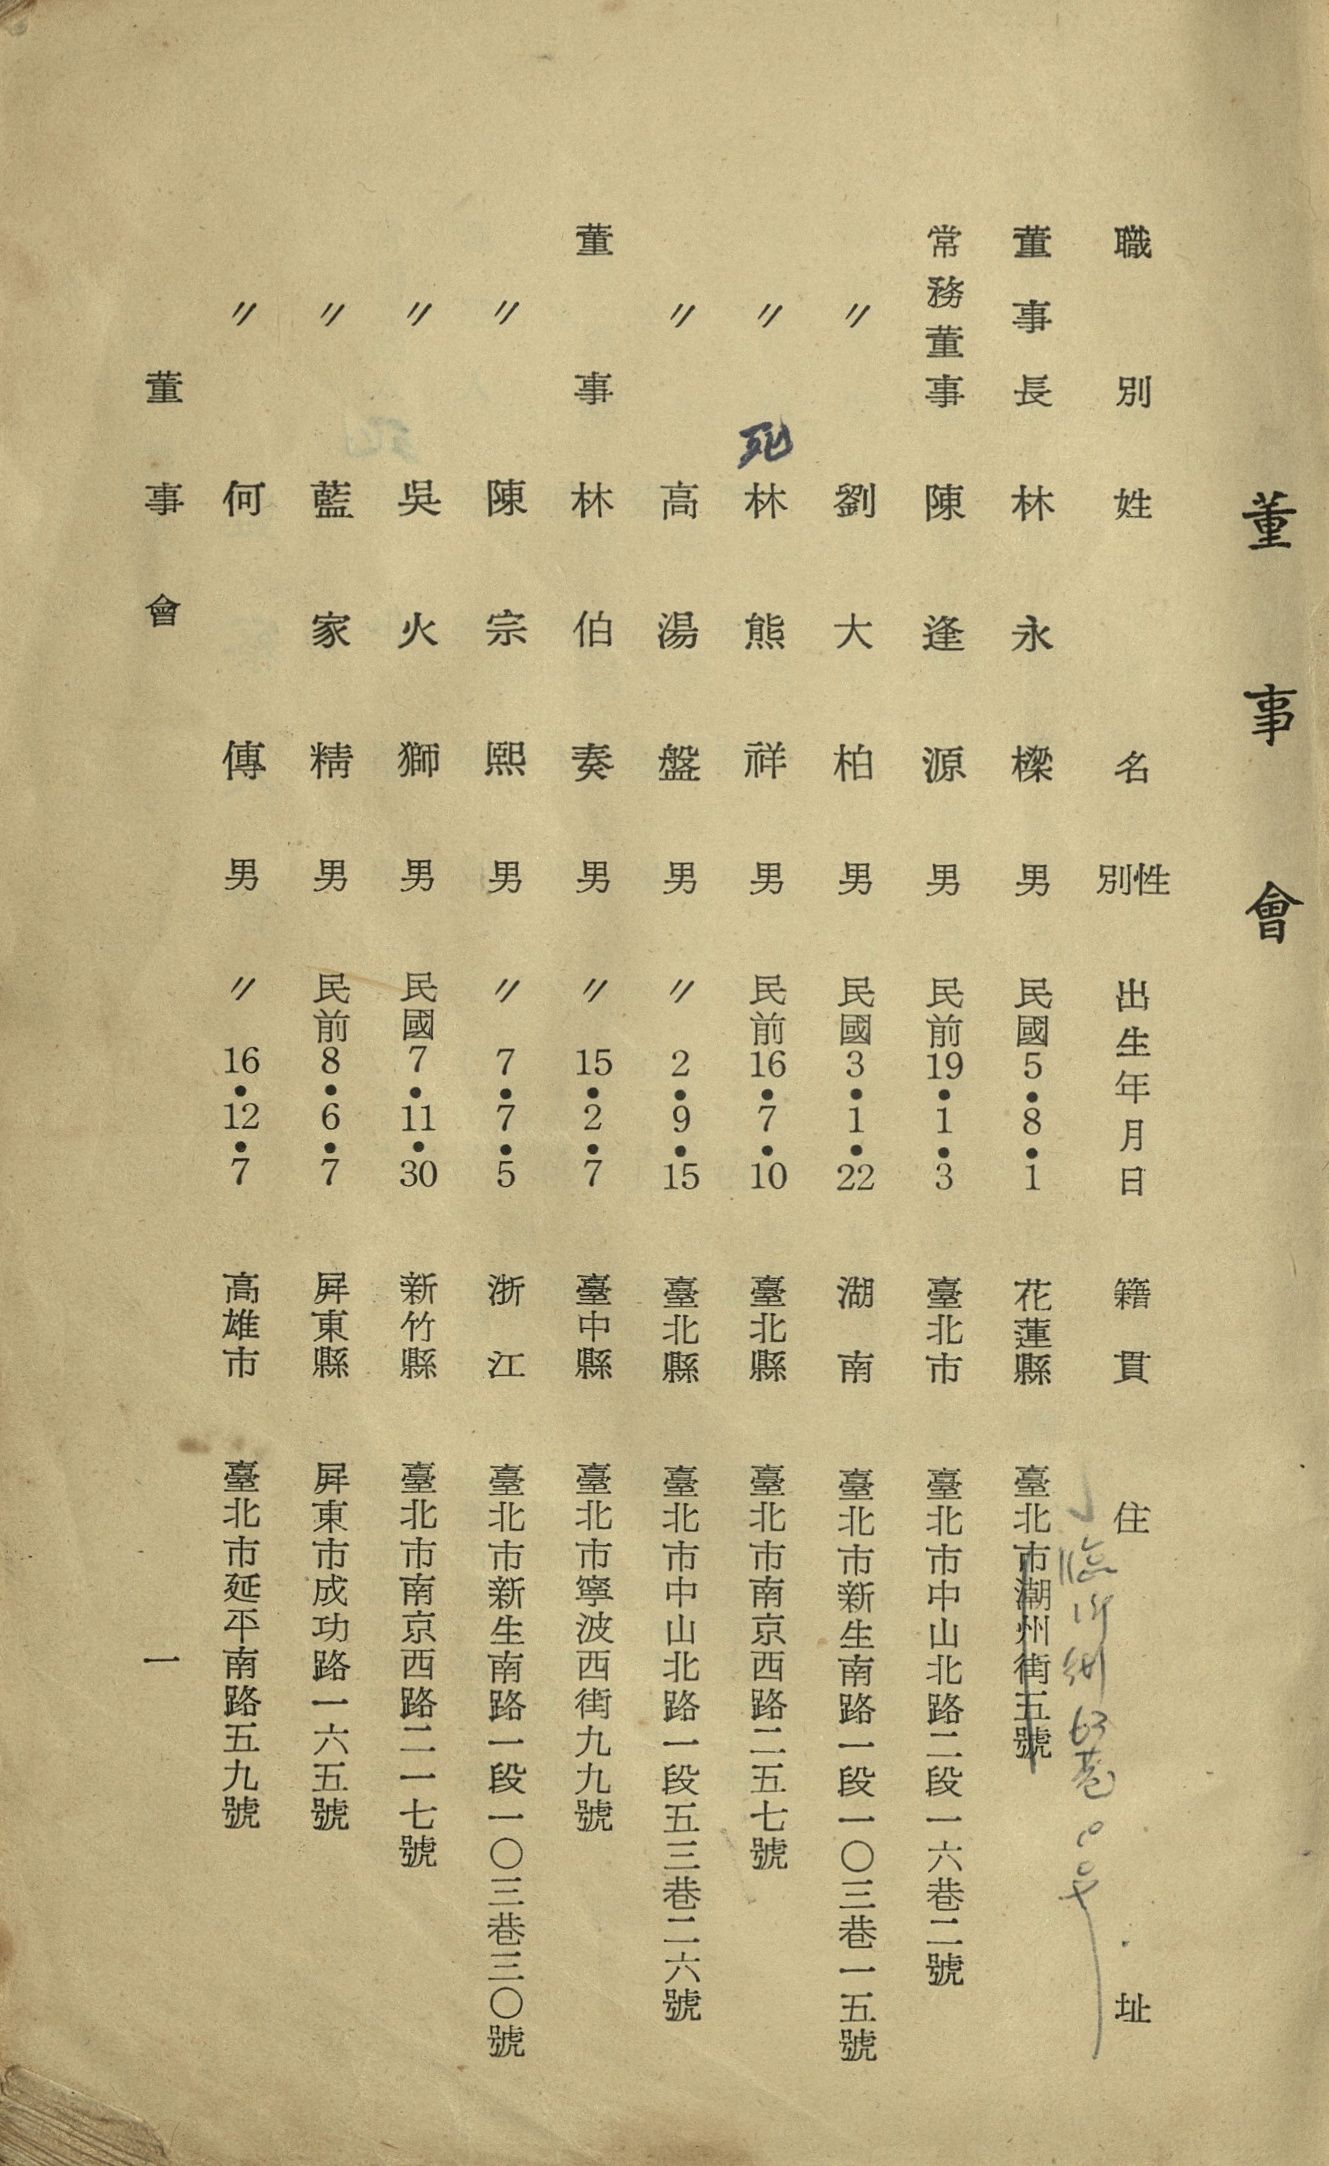 董事會
職別 姓名 性別 出生年月日 籍貫 住址
臨沂街63巷
董事長 林永樑 男 民國5•8•1 花蓮縣 臺北市潮州街五號
常務董事 陳逢源 男 民前19•1•3 臺北市 臺北市中山北路二段一六巷二號
〃 劉大柏 男 民國3•1•22 湖南 臺北市新生南路一段一〇三巷一五號
〃 死 林熊祥 男 民前16•7•10 臺北縣 臺北市南京西路二五七號
〃 高湯盤 男 〃2•9•15 臺北縣 臺北市中山北路一段五三巷二六號
董事 林伯奏 男 〃15•2•7 臺中縣 臺北市寧波西街九九號
〃 陳宗熙 男 〃7•7•5 浙江 臺北市新生南路一段一〇三巷三〇號
〃 吳火獅 男 民國7•11•30 新竹縣 臺北市南京西路二一七號
〃 藍家精 男 民前8•6•7 屏東縣 屏東市成功路一六五號
〃 何傳 男 〃16•12•7 高雄市 臺北市延平南路五九號
董事會 一